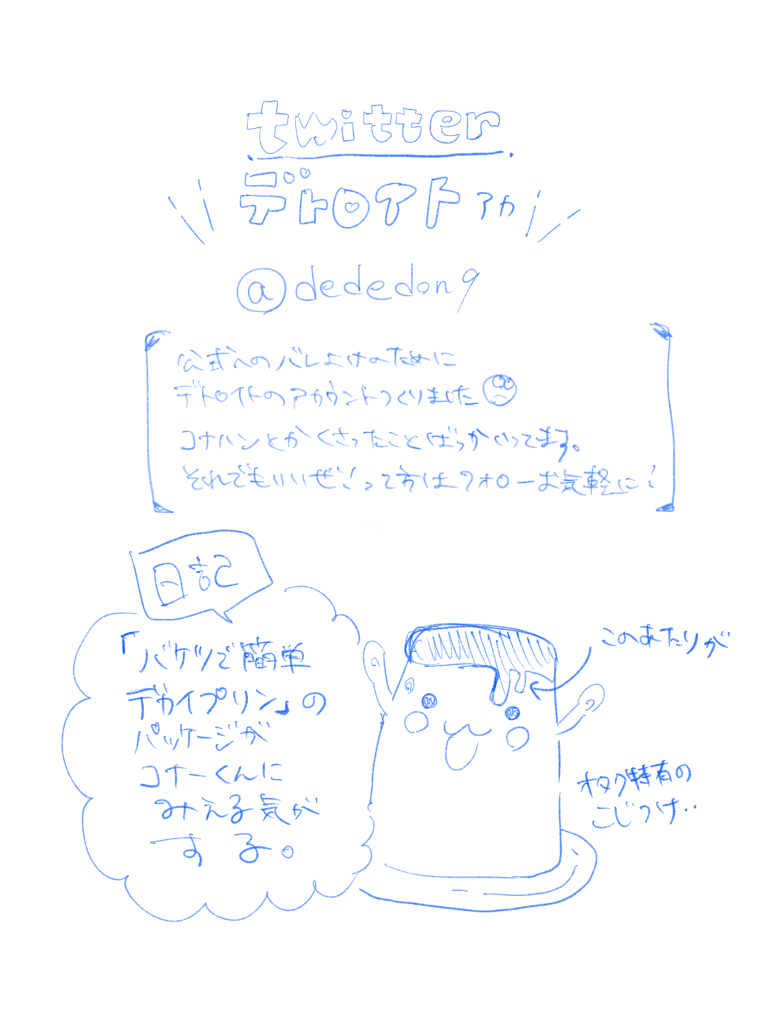 twitter
デトロイトアカ
@dededon9
公式へのバレよけのために
デトロイトのアカウントつくりました
コナハンとかくさったことばっかいってます。
それでもいいぜ!って方はフォローお気軽に!
日記
「バケツで簡単
デカイプリン」の
パッケージが
コナーくんに
みえる気が
する。
このあたりが
オタク特有の
こじつけ..